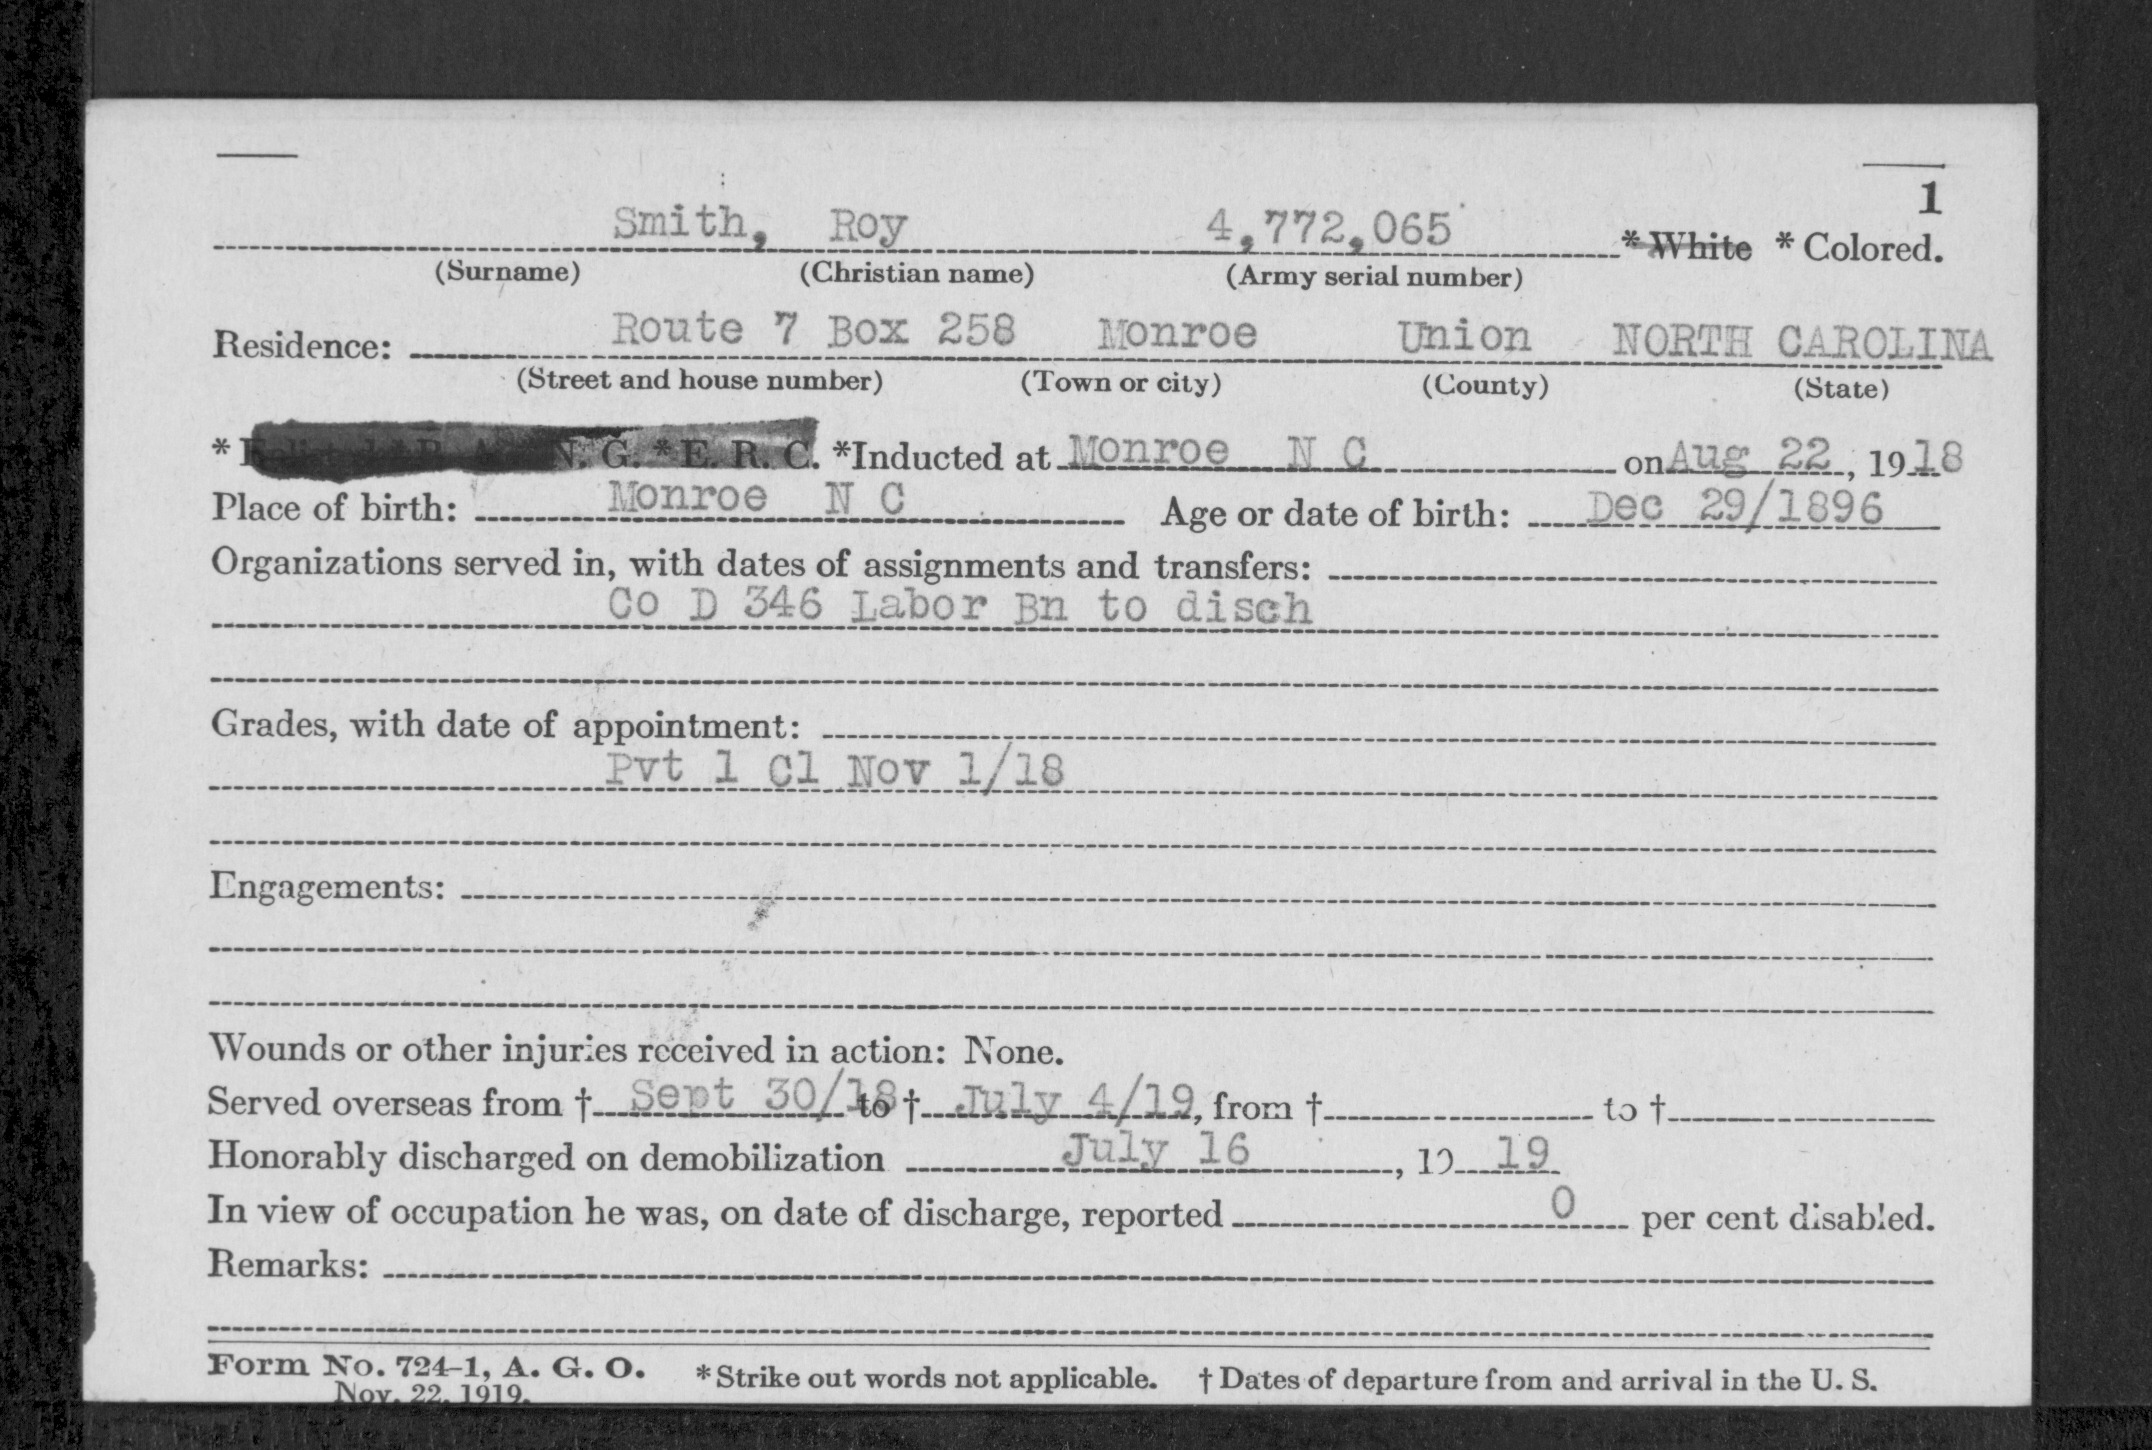 1
Smith, Roy 4,772,065 * White * Colored.
(Surname) (Christian name) (Army serial number)
Residence: Route 7 Box 258 Monroe Union NORTH CAROLINA
(Street and house number) (Town or city) (County) (State)
* Enlisted * R. A. N. G. * E. R. C. *Inducted at Monroe N C on Aug 22, 1918
Place of birth: Monroe N C Age or date of birth: Dec 29/1896
Organizations served in, with dates of assignments and transfers:
Co D 346 Labor Bn to disch
Grades, with date of appointment:
Pvt 1 Cl Nov 1/18
Engagements:
Wounds or other injuries received in action: None.
Served overseas from † Sept 30/18 to † July 4/19, from † to †
Honorably discharged on demobilization July 16, 19 19
In view of occupation he was, on date of discharge, reported 0 per cent disabled.
Remarks:
Form No. 724-1, A. G. O. * Strike out words not applicable. † Dates of departure from and arrival in the U. S.
Nov. 22, 1919.